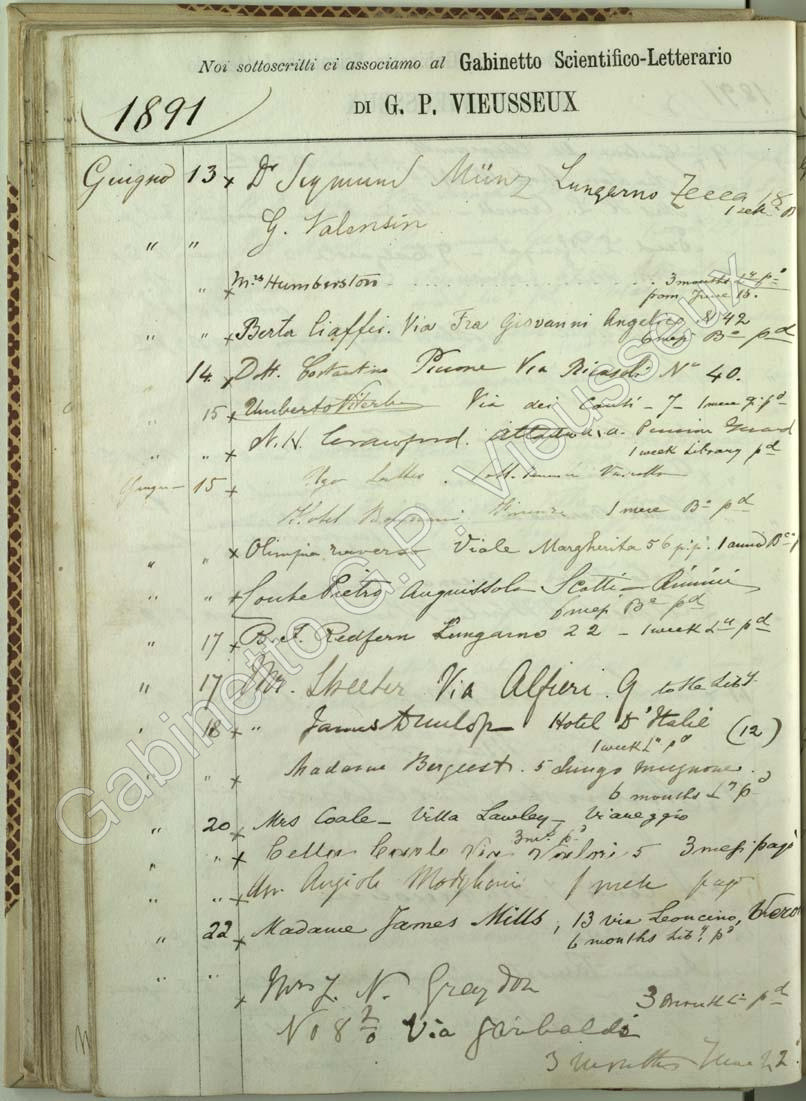 Noi sottoscritti ci associamo al Gabinetto Scientifico-Letterario
DI G. P. VIEUSSEUX
1891
Giugno 13 x Dr Sigmund Münz Lungarno Zecca 18
G. Valensin
" "
" x Mrs Humberston 3 months Ly pd
from June 15.
" " x Berta Ciaffei. Via Fra Giovanni Angelico 42
6 mesi Be pd
14 x Dott. Costantino Via Ricasoli No 40.
" 15 x Umberto Viterbo Via dei Conti - 7 - 1 mese pd
" " x Crawford. a.
1 week Library pd
Giugno - 15 x Ugo
Hotel Firenze 1 mese Be pd
" " x Olimpia Viale Margherita 56 p.p. 1 anno Be
" " x Conte Pietro Anguissola Scotti - Rimini
6 mesi Be pd
" 17 x B. F. Redfern Lungarno 22 - 1 week Ly pd
" 17 x Mr. Streeter Via Alfieri 9
" 18 x " James Dunlop Hotel D'Italie (12)
1 week Ly pd
" " x Madame 5 Lungo Mugnone.
6 months Ly pd
" 20 x Mrs Coale - Villa Lawley - Viareggio
3 m. pd
" " x Via 5 3 mesi pag
" " x Avv. Angiolo Modigliani 1 mese pag
" 22 x Madame James Mills, 13 via Leoncino,
6 months Liby pd
" " x Mrs J. N. Graydon
3 month Ly pd
No 8 Via Garibaldi
3 months June 22
Gabinetto G.P. Vieusseux